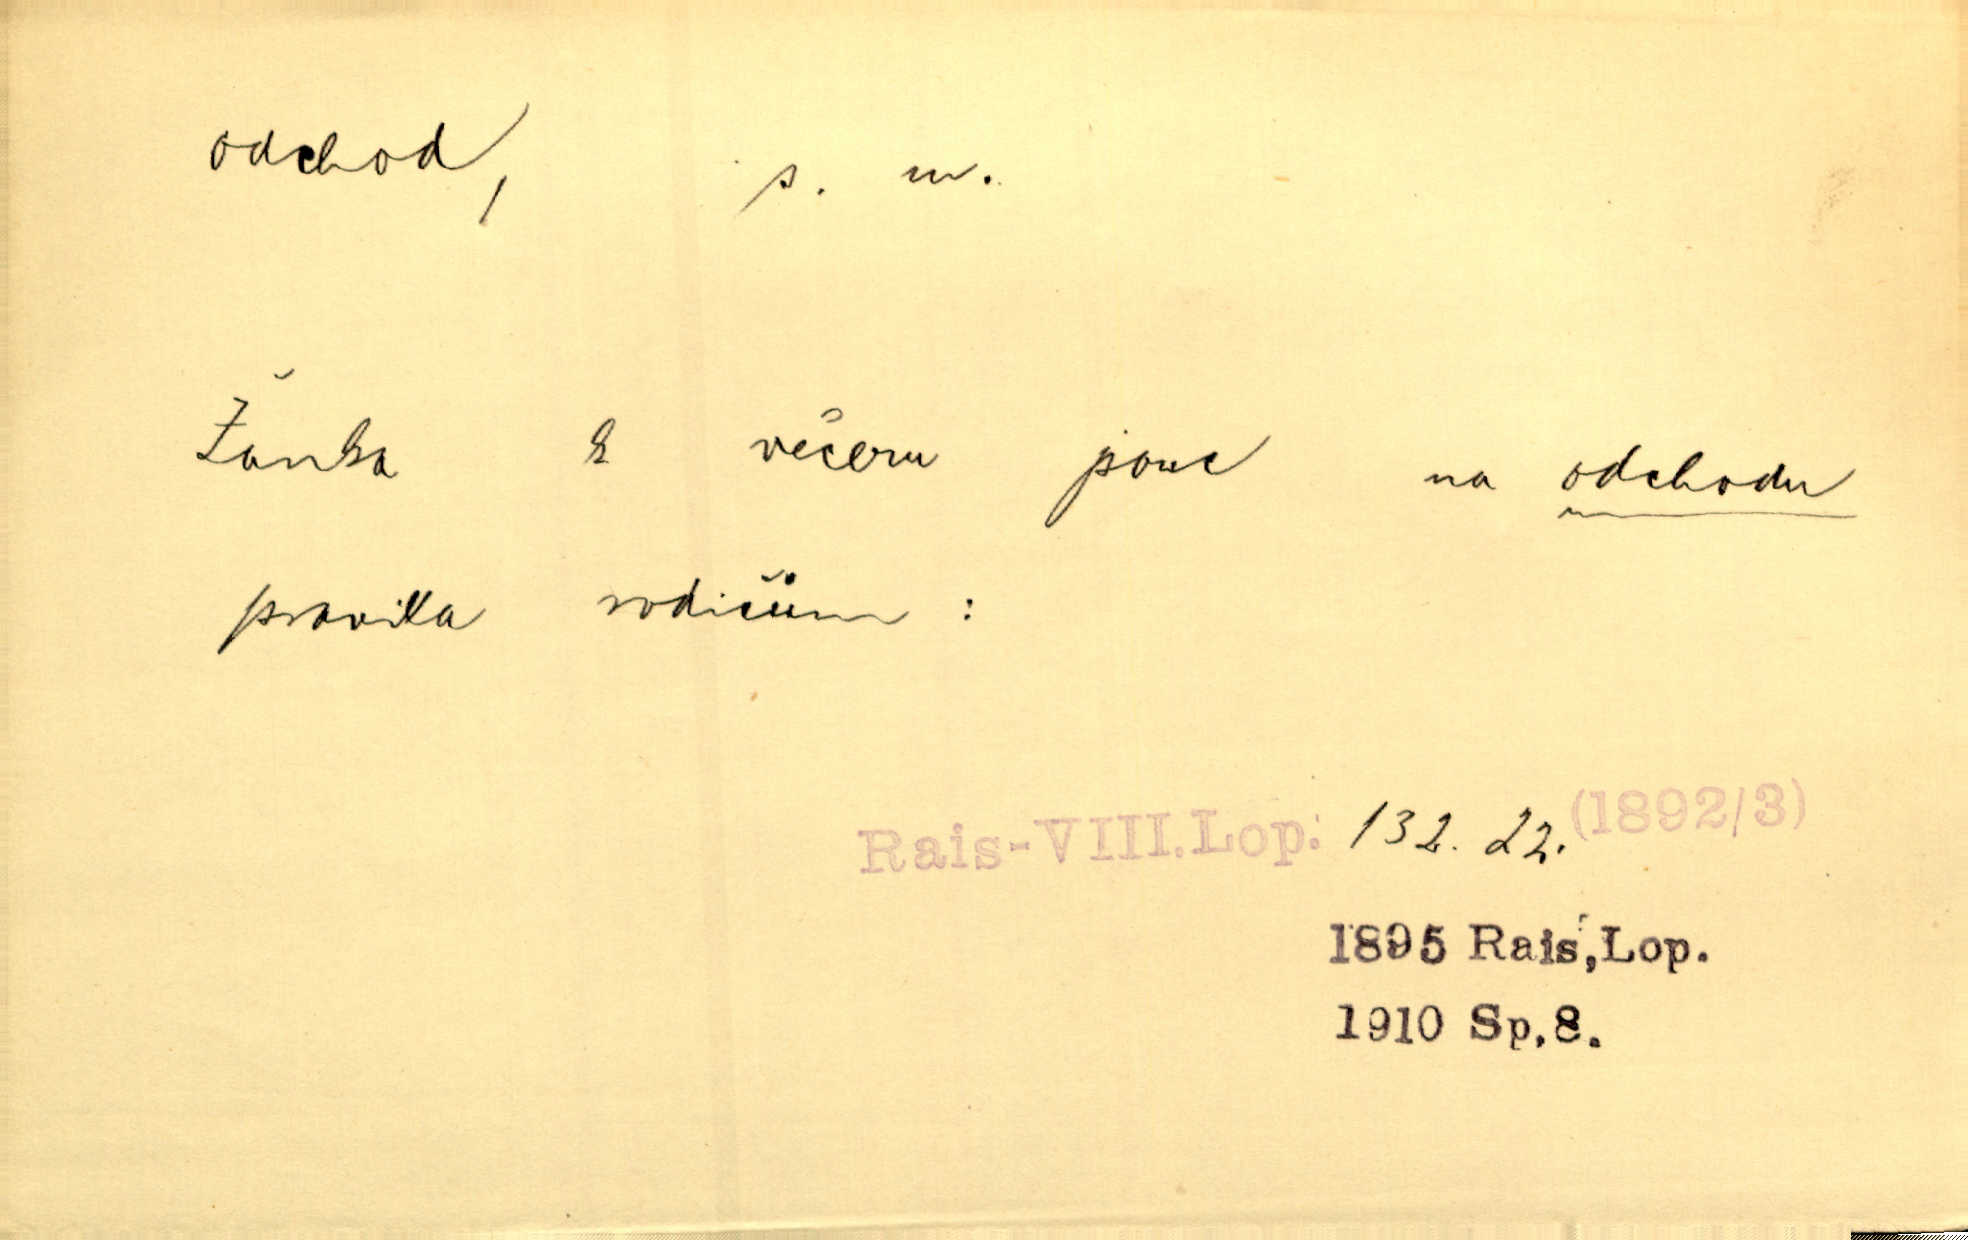 odchod, s. m.
Žanka k večeru jsouc na odchodu
pravila rodičům :
Rais-VIII.Lop. 132. 22. (1892/3)
1895 Rais,Lop.
1910 Sp.8.